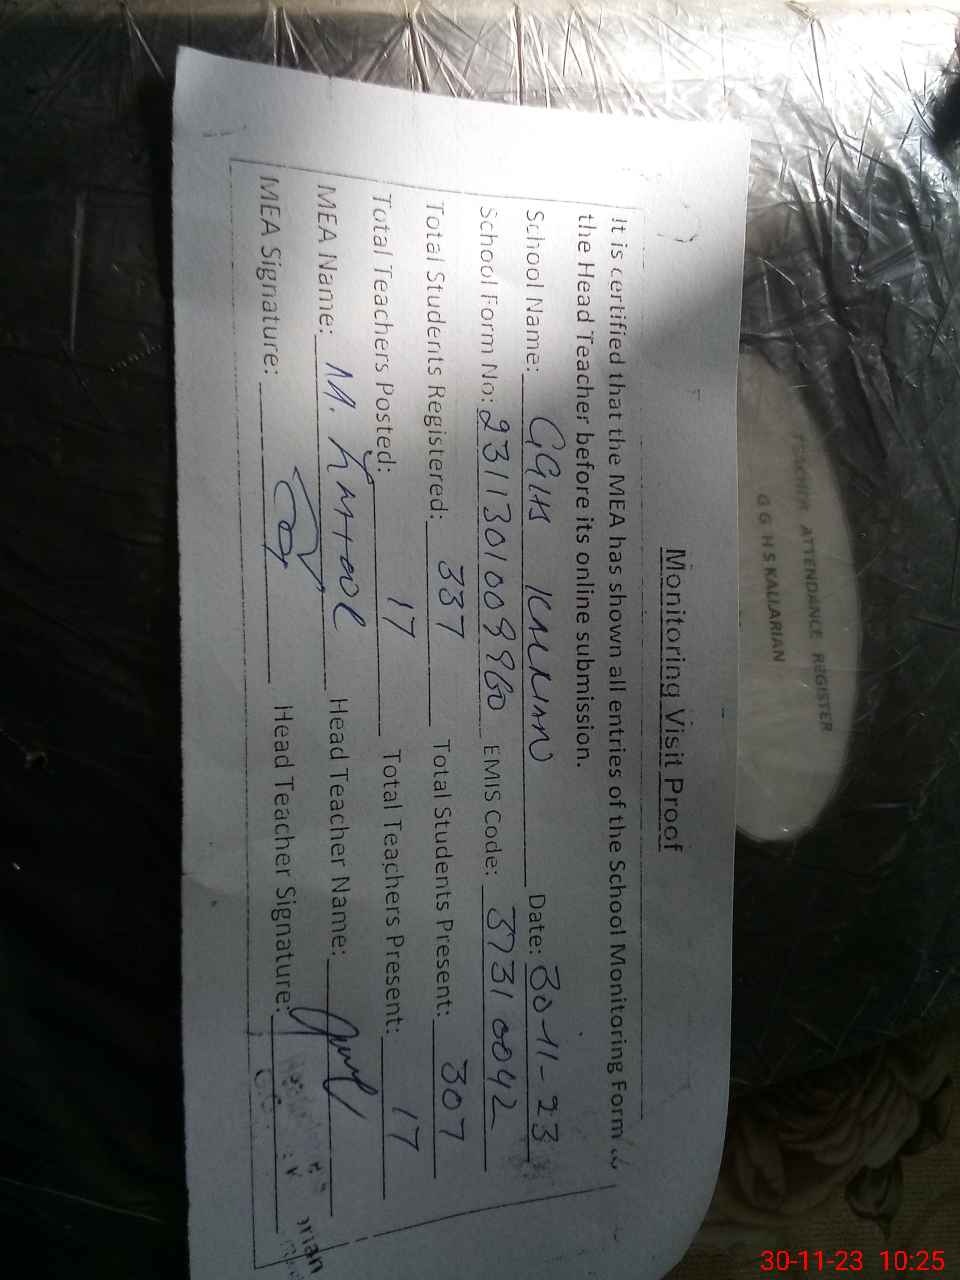 TEACHER ATTENDANCE REGISTER
G G H S KALLARIAN
Monitoring Visit Proof
It is certified that the MEA has shown all entries of the School Monitoring Form to
the Head Teacher before its online submission.
School Name: GGHS Date: 30-11-23
School Form No: EMIS Code: 37310042
Total Students Registered: 337 Total Students Present: 307
Total Teachers Posted: 17 Total Teachers Present: 17
MEA Name: M. Head Teacher Name:
MEA Signature: Head Teacher Signature:
30-11-23 10:25